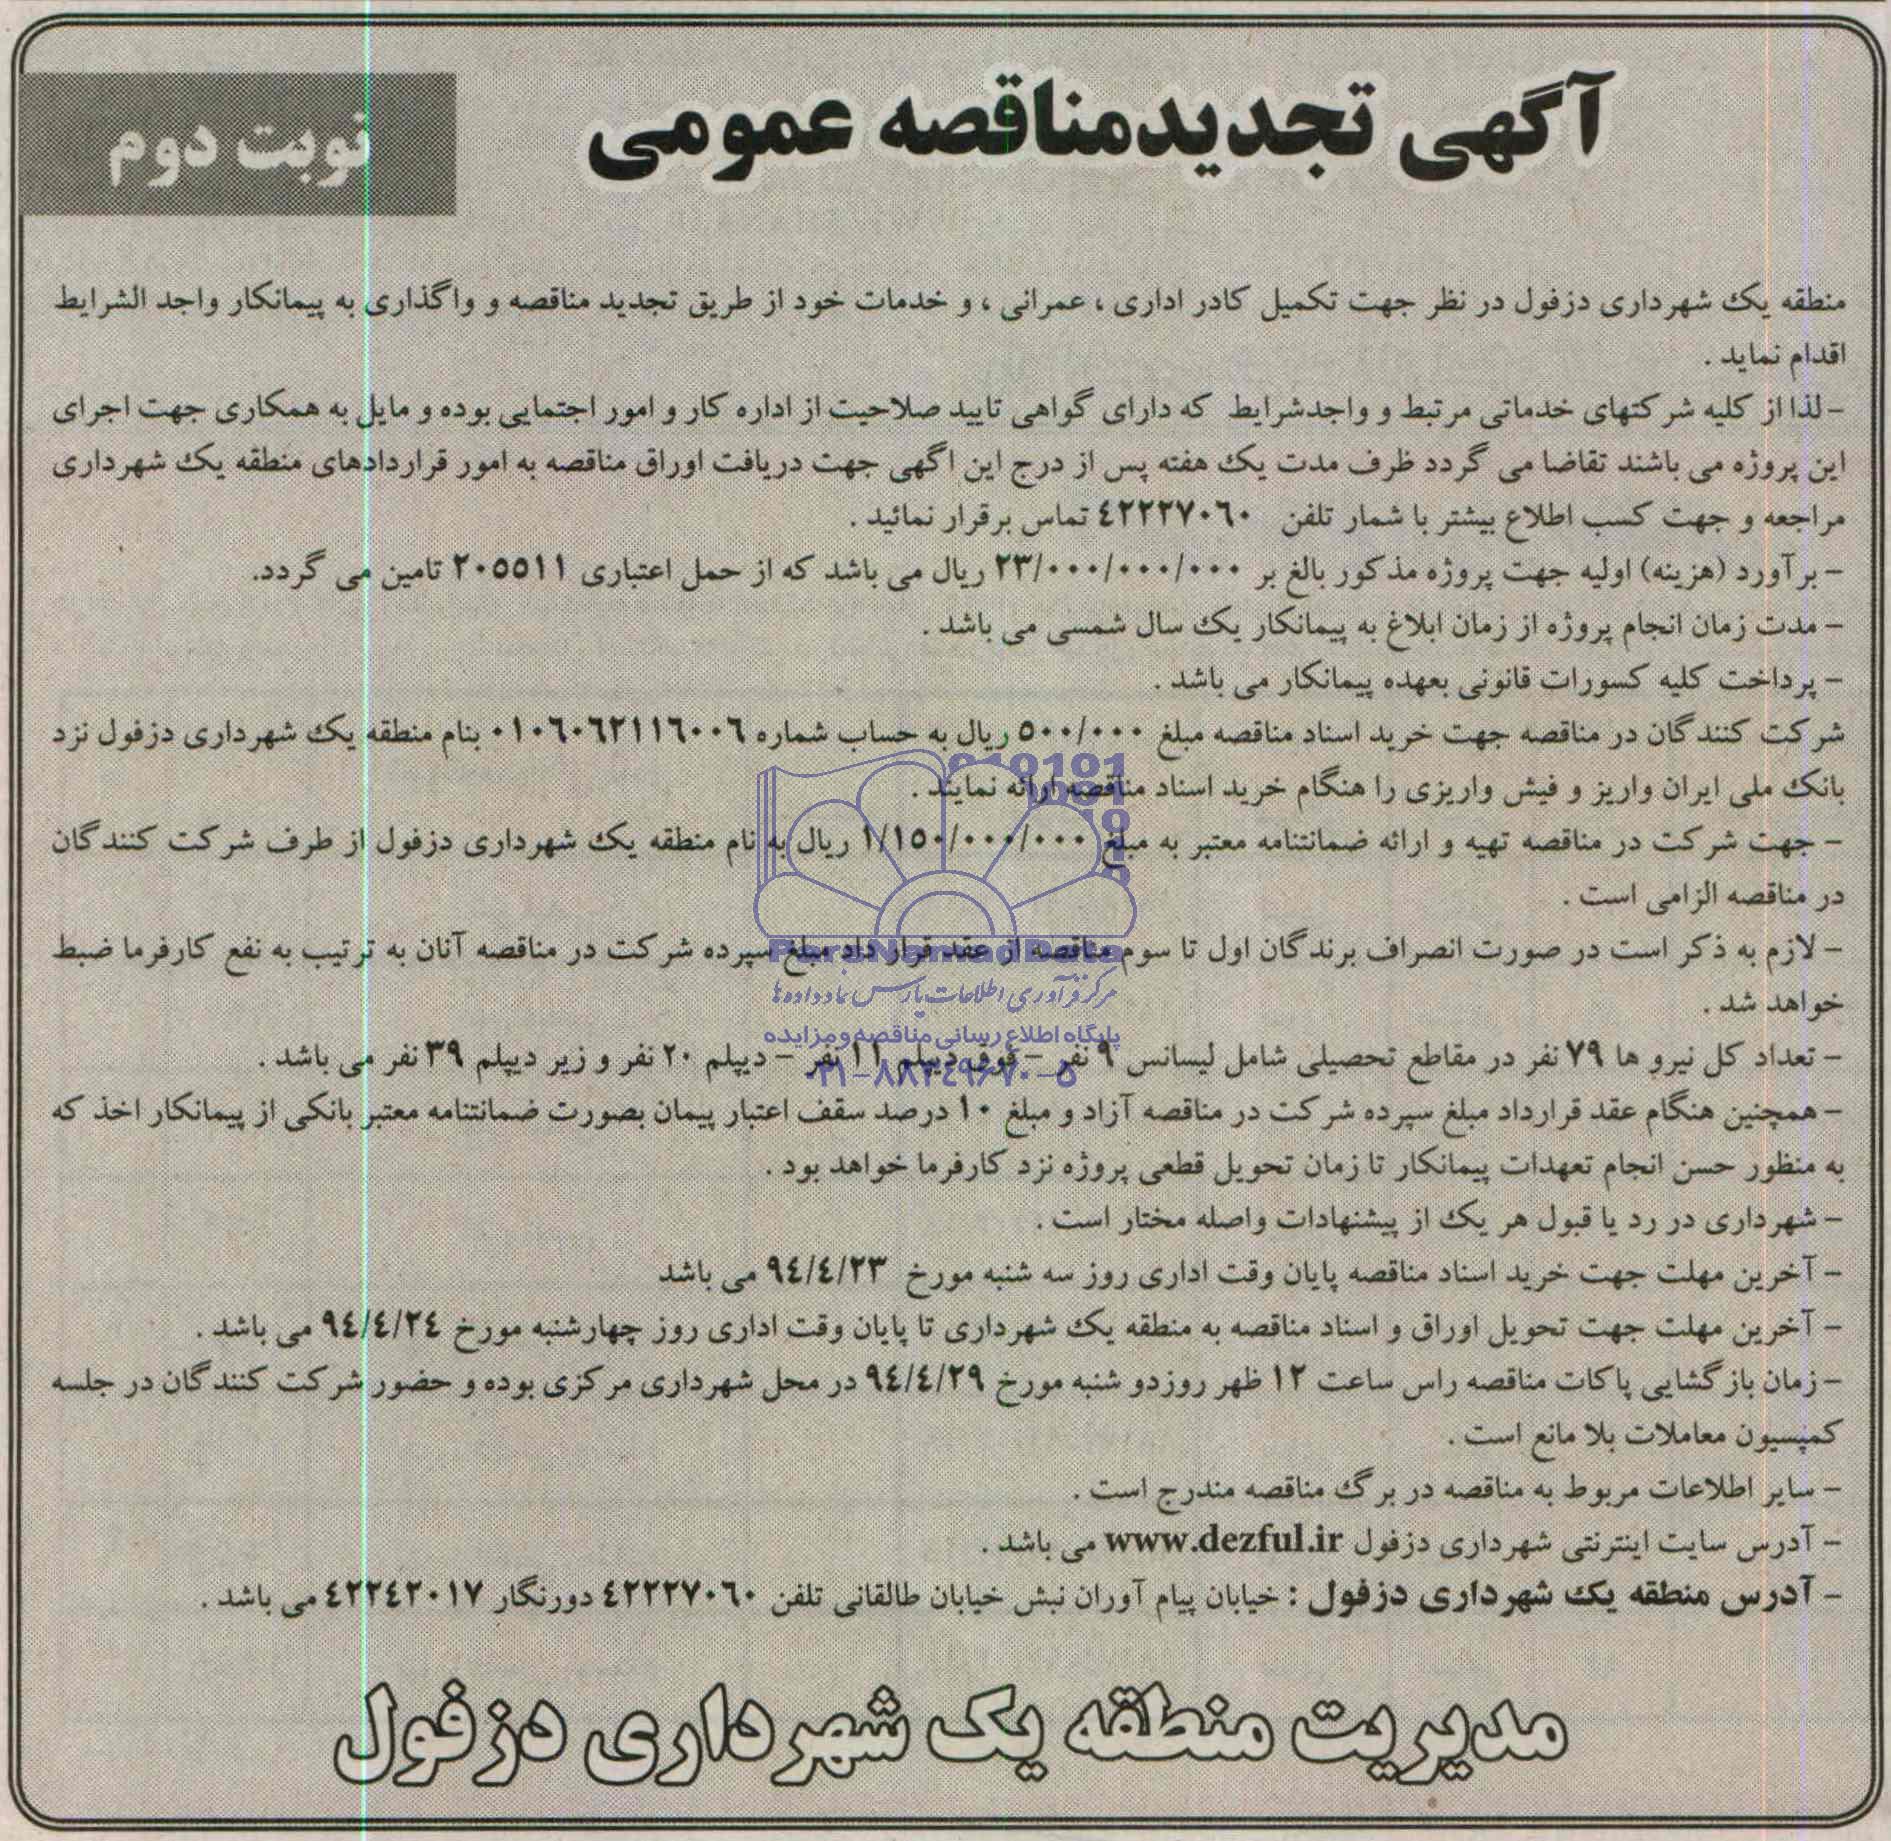 آگهی تجدیدمناقصه عمومی
نوبت دوم
منطقه یک شهرداری دزفول در نظر جهت تکمیل کادر اداری ، عمرانی ، و خدمات خود از طریق تجدید مناقصه و واگذاری به پیمانکار واجد الشرایط
اقدام نماید .
- لذا از کلیه شرکتهای خدماتی مرتبط و واجدشرایط که دارای گواهی تایید صلاحیت از اداره کار و امور اجتمایی بوده و مایل به همکاری جهت اجرای
این پروژه می باشند تقاضا می گردد ظرف مدت یک هفته پس از درج این اگهی جهت دریافت اوراق مناقصه به امور قراردادهای منطقه یک شهرداری
مراجعه و جهت کسب اطلاع بیشتر با شمار تلفن ٤٢٢٢٧٠٦٠ تماس برقرار نمائید .
- برآورد (هزینه) اولیه جهت پروژه مذکور بالغ بر ٢٣/٠٠٠/٠٠٠/٠٠٠ ریال می باشد که از حمل اعتباری ٢٠٥٥١١ تامین می گردد.
- مدت زمان انجام پروژه از زمان ابلاغ به پیمانکار یک سال شمسی می باشد .
- پرداخت کلیه کسورات قانونی بعهده پیمانکار می باشد .
شرکت کنندگان در مناقصه جهت خرید اسناد مناقصه مبلغ ٥٠٠/٠٠٠ ریال به حساب شماره ٠١٠٦٠٦٢١١٦٠٠٦ بنام منطقه یک شهرداری دزفول نزد
بانک ملی ایران واریز و فیش واریزی را هنگام خرید اسناد مناقصه ارائه نمایند .
- جهت شرکت در مناقصه تهیه و ارائه ضمانتنامه معتبر به مبلغ ١/١٥٠/٠٠٠/٠٠٠ ریال به نام منطقه یک شهرداری دزفول از طرف شرکت کنندگان
در مناقصه الزامی است .
- لازم به ذکر است در صورت انصراف برندگان اول تا سوم مناقصه از عقد قرار داد مبلغ سپرده شرکت در مناقصه آنان به ترتیب به نفع کارفرما ضبط
خواهد شد .
ParsNamadData
مرکز فرآوری اطلاعات پارس نماد داده ها
پایگاه اطلاع رسانی مناقصه و مزایده
۰۲۱-۸۸۳۴۹۶۷۰-۵
- تعداد کل نیرو ها ٧٩ نفر در مقاطع تحصیلی شامل لیسانس ٩ نفر - فوق دیپلم ١١ نفر - دیپلم ٢٠ نفر و زیر دیپلم ٣٩ نفر می باشد .
- همچنین هنگام عقد قرارداد مبلغ سپرده شرکت در مناقصه آزاد و مبلغ ١٠ درصد سقف اعتبار پیمان بصورت ضمانتنامه معتبر بانکی از پیمانکار اخذ که
به منظور حسن انجام تعهدات پیمانکار تا زمان تحویل قطعی پروژه نزد کارفرما خواهد بود .
- شهرداری در رد یا قبول هر یک از پیشنهادات واصله مختار است .
- آخرین مهلت جهت خرید اسناد مناقصه پایان وقت اداری روز سه شنبه مورخ ٩٤/٤/٢٣ می باشد
- آخرین مهلت جهت تحویل اوراق و اسناد مناقصه به منطقه یک شهرداری تا پایان وقت اداری روز چهارشنبه مورخ ٩٤/٤/٢٤ می باشد .
- زمان بازگشایی پاکات مناقصه راس ساعت ١٢ ظهر روزدو شنبه مورخ ٩٤/٤/٢٩ در محل شهرداری مرکزی بوده و حضور شرکت کنندگان در جلسه
کمیسیون معاملات بلا مانع است .
- سایر اطلاعات مربوط به مناقصه در برگ مناقصه مندرج است .
- آدرس سایت اینترنتی شهرداری دزفول www.dezful.ir می باشد .
- آدرس منطقه یک شهرداری دزفول : خیابان پیام آوران نبش خیابان طالقانی تلفن ٤٢٢٢٧٠٦٠ دورنگار ٤٢٢٤٢٠١٧ می باشد .
مدیریت منطقه یک شهرداری دزفول